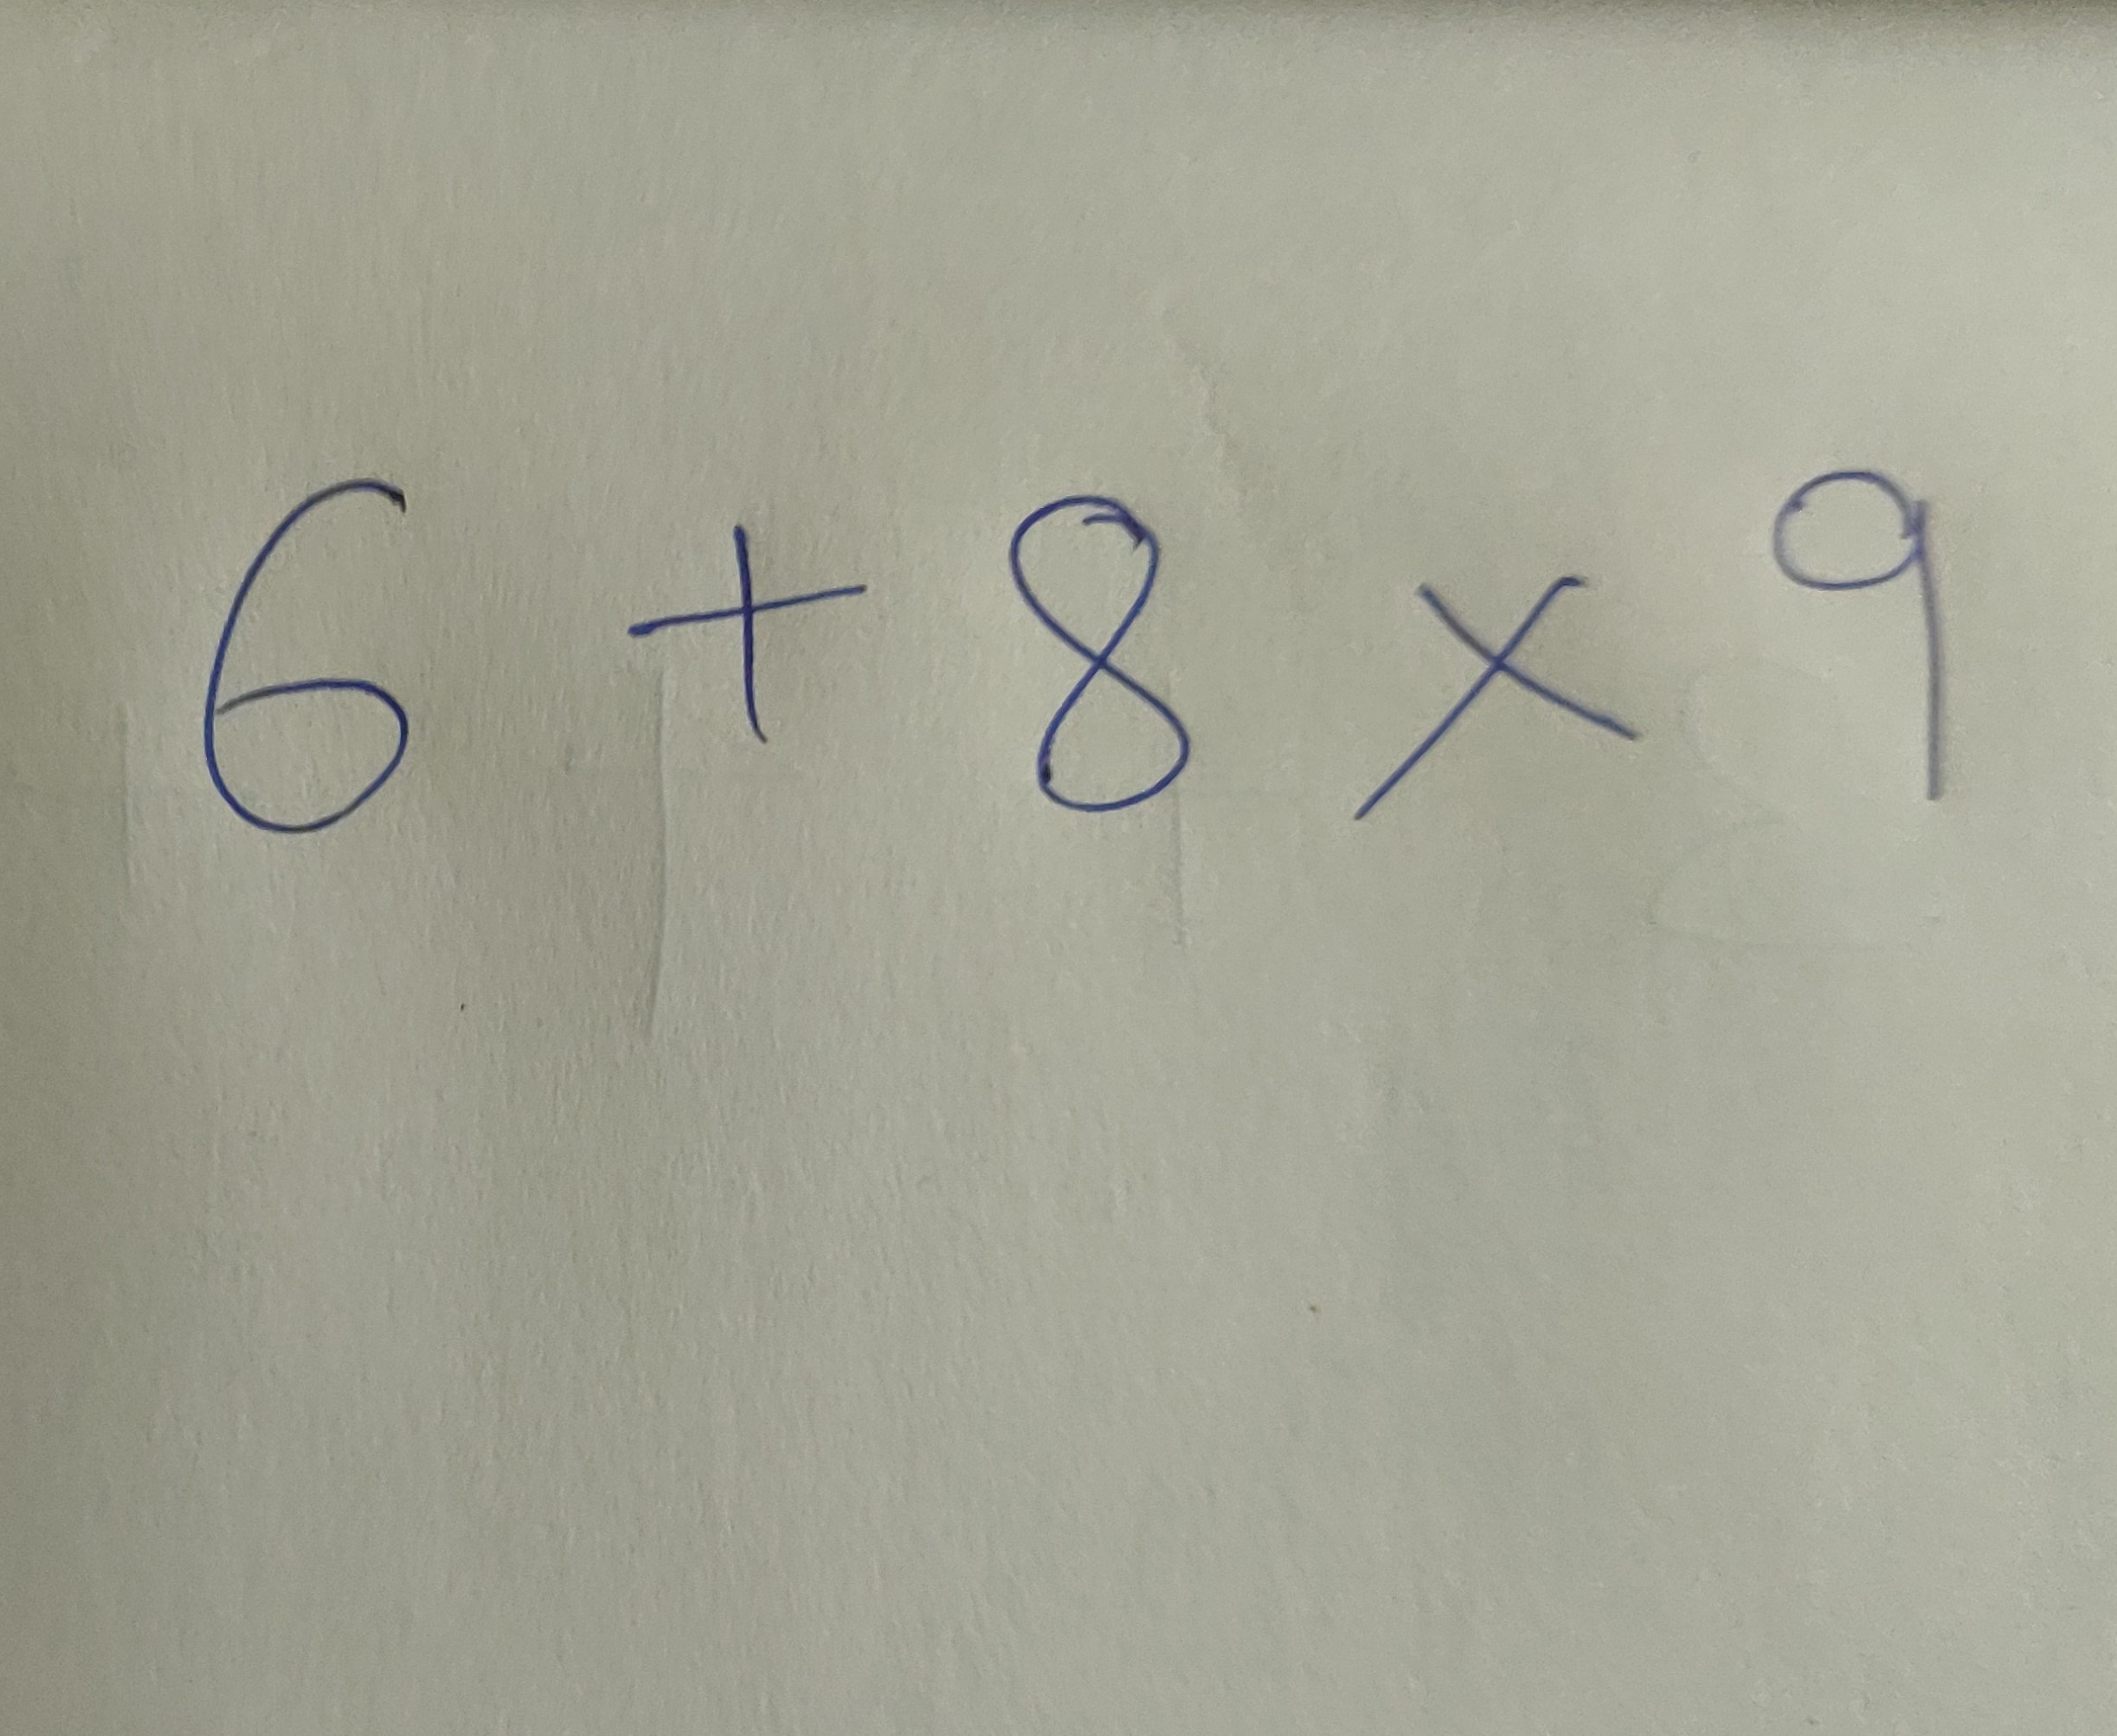 6 + 8 × 9